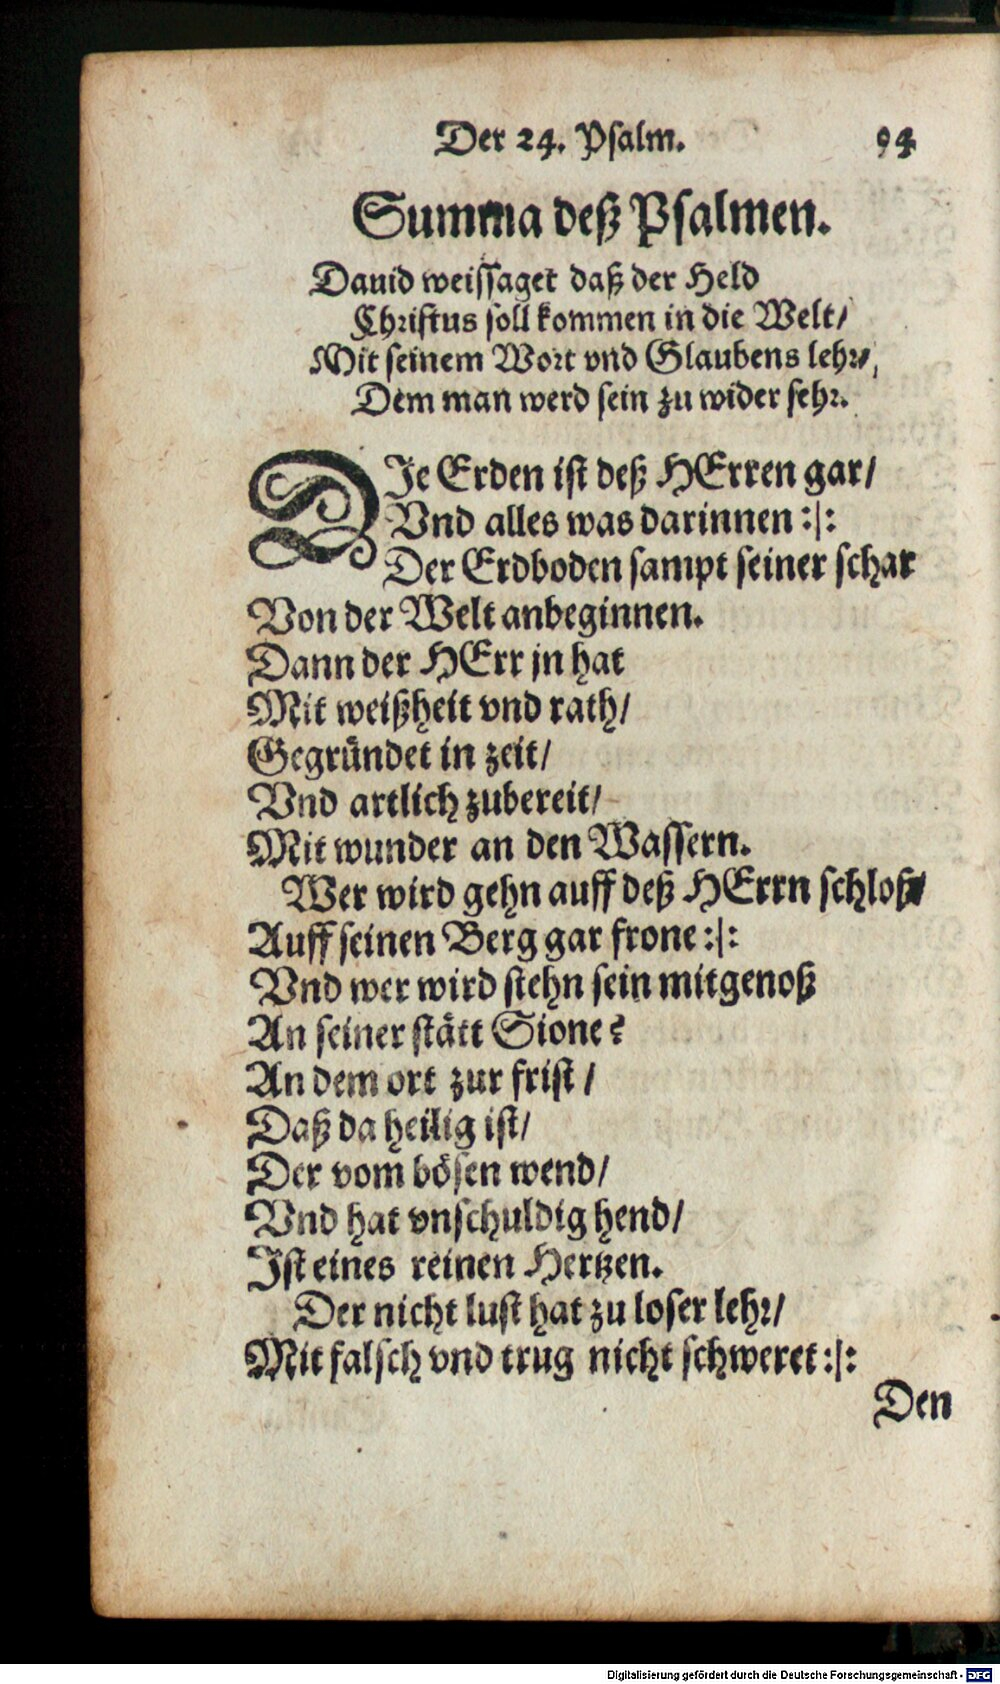 Der 24. Psalm. 94
Summa deß Psalmen.
Dauid weissaget daß der Held
Christus soll kommen in die Welt/
Mit seinem Wort vnd Glaubens lehr/,
Dem man werd sein zu wider sehr.
DJe Erden ist deß HErren gar/
Vnd alles was darinnen :|:
Der Erdboden sampt seiner schar
Von der Welt anbeginnen.
Dann der HErr jn hat
Mit weißheit vnd rath/
Gegründet in zeit/
Vnd artlich zubereit/
Mit wunder an den Wassern.
Wer wird gehn auff deß HErrn schloß/
Auff seinen Berg gar frone :|:
Vnd wer wird stehn sein mitgenoß
An seiner stätt Sione?
An dem ort zur frist /
Daß da heilig ist/
Der vom bösen wend/
Vnd hat vnschuldig hend/
Jst eines reinen Hertzen.
Der nicht lust hat zu loser lehr/
Mit falsch vnd trug nicht schweret :|:
Den
Digitalisierung gefördert durch die Deutsche Forschungsgemeinschaft - DFG